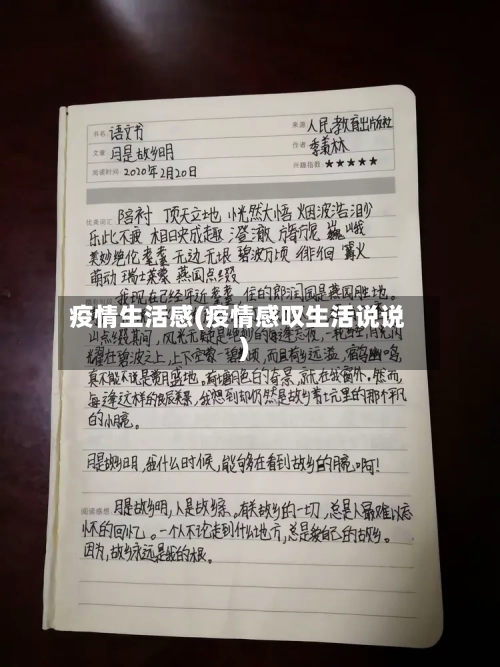 书名: 语文书 来源: 人民教育出版社
文章: 月是故乡明 作者: 季羡林
阅读时间: 2020年2月20日 兴趣指数: ★★★★★
优美词汇: 陪衬 顶天立地 恍然大悟 烟波浩渺
乐此不疲 相映成趣 澄澈 旖旎 巍峨
美妙绝伦 耄耋 无边无垠 碧波万顷 徘徊 篝火
萌动 瑞士莱蒙 燕园
我现在已经年近耄耋,住的朗润园是燕园胜地。
疫情生活感(疫情感叹生活说说
)
上下空 一碧 顷,而 荷 远溢,宿鸟幽鸣,
真不能不说是赏月 地。荷塘月色的奇景,就在我窗外。然而,
每逢这样的良辰美景,我想到的却仍然是故乡苇坑里的那个平凡
的小月亮。
月是故乡明,我什么时候,能够在看到故乡的月亮啊!
阅读感想: 月是故乡明,人是故乡亲。有关故乡的一切,总是人最难以忘
怀的回忆。一个人不论走到什么地方,总是 自己的故乡。
因为,故乡永远是我的根。